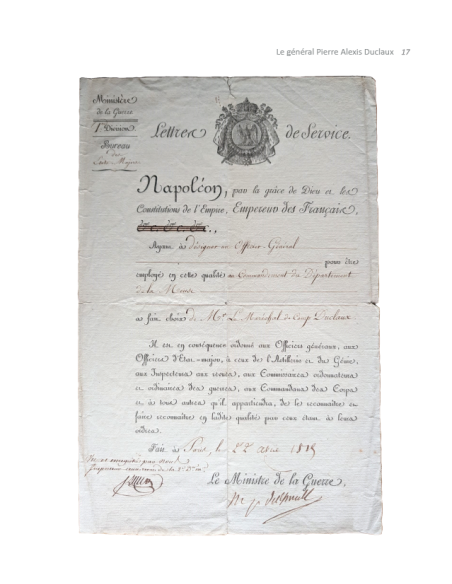 Le général Pierre Alexis Duclaux 17
Ministère
de la Guerre
Division
Bureau
Lettres de Service.
Napoléon, par la grâce de Dieu et les
Constitutions de l'Empire, Empereur des Français,
Ayant à désigner un Officier Général
pour être
employé en cette qualité au Commandement du Département
de la Meuse
a fait choix de Mr Le Maréchal de Camp Duclaux
Il est en conséquence ordonné aux Officiers généraux, aux
Officiers d'Etat-major, à ceux de l'Artillerie et du Génie,
aux Inspecteurs aux revues, aux Commissaires ordonnateurs
et ordinaires des guerres, aux Commandans des Corps
et à tous autres qu'il appartiendra, de le reconnaître et
faire reconnaître en ladite qualité par ceux étant à leurs
ordres.
Fait à Paris, le 22 avril 1815
Le Ministre de la Guerre,